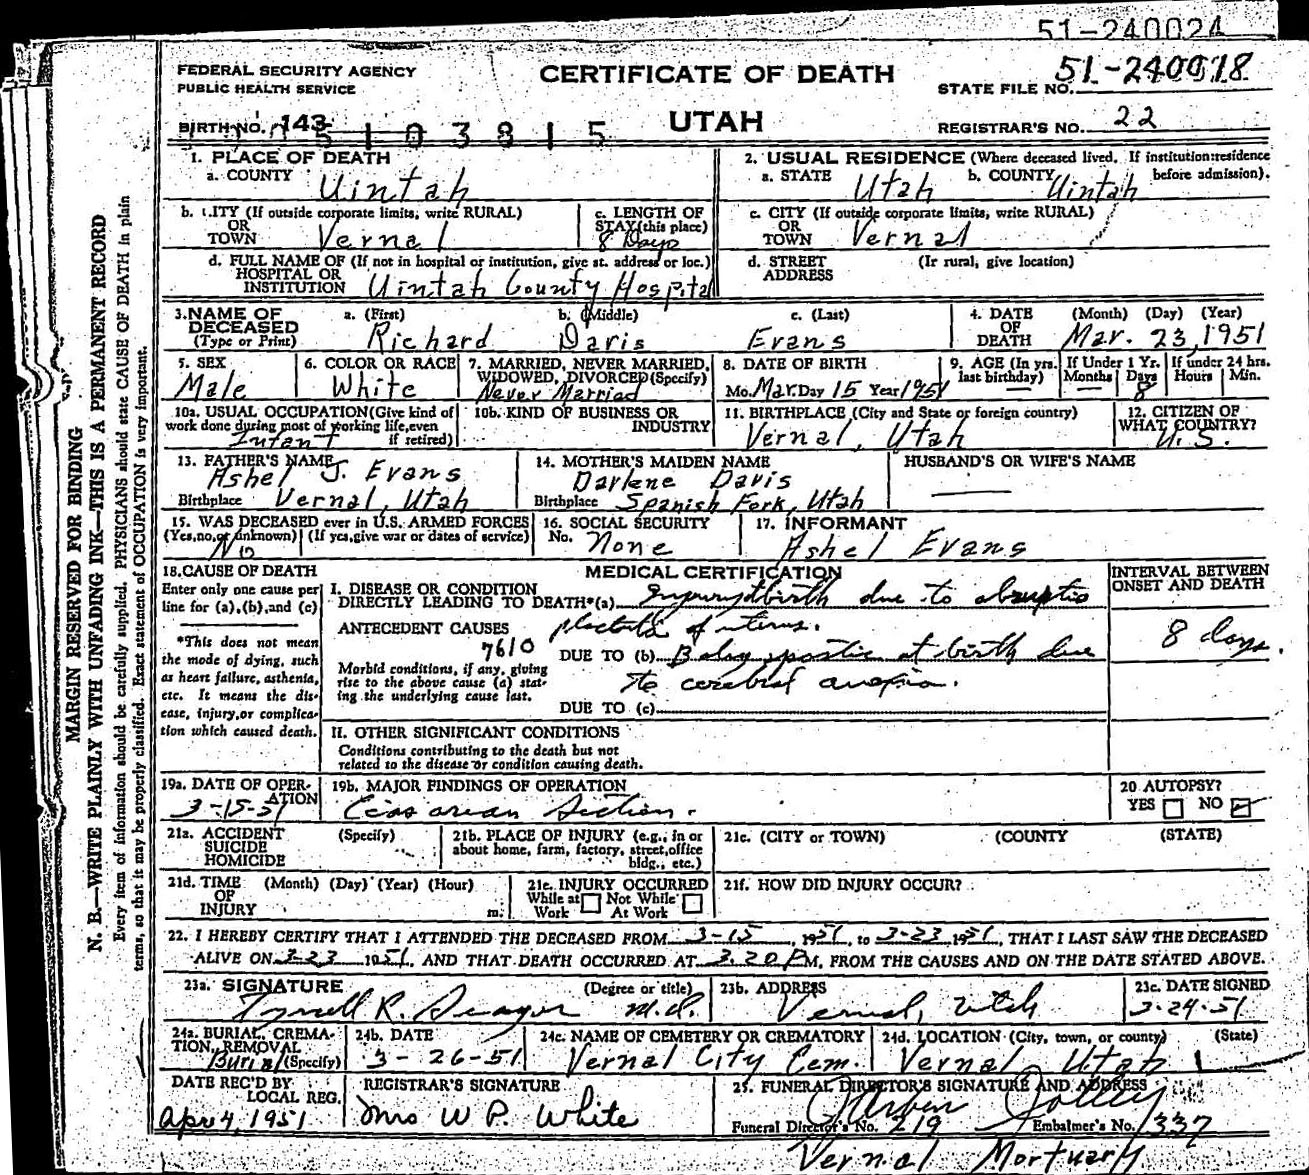 51-240024
FEDERAL SECURITY AGENCY
PUBLIC HEALTH SERVICE
CERTIFICATE OF DEATH
UTAH
STATE FILE NO. 51-240018
BIRTH NO. 143
5 1 0 3 8 1 5
REGISTRAR'S NO. 22
MARGIN RESERVED FOR BINDING
N. B.—WRITE PLAINLY WITH UNFADING INK—THIS IS A PERMANENT RECORD
Every item of information should be carefully supplied. PHYSICIANS should state CAUSE OF DEATH in plain
terms, so that it may be properly classified. Exact statement of OCCUPATION is very important.
1. PLACE OF DEATH
a. COUNTY Uintah
2. USUAL RESIDENCE (Where deceased lived. If institution: residence before admission).
a. STATE Utah b. COUNTY Uintah
b. CITY (If outside corporate limits, write RURAL) OR TOWN Vernal
c. LENGTH OF STAY (this place) 8 Days
c. CITY (If outside corporate limits, write RURAL) OR TOWN Vernal
d. FULL NAME OF (If not in hospital or institution, give st. address or loc.) HOSPITAL OR INSTITUTION Uintah County Hospital
d. STREET ADDRESS (If rural, give location)
3. NAME OF DECEASED (Type or Print)
a. (First) Richard b. (Middle) Davis c. (Last) Evans
4. DATE OF DEATH (Month) (Day) (Year) Mar. 23, 1951
5. SEX Male
6. COLOR OR RACE White
7. MARRIED, NEVER MARRIED, WIDOWED, DIVORCED (Specify) Never Married
8. DATE OF BIRTH Mo. Mar. Day 15 Year 1951
9. AGE (In yrs. last birthday) —
If Under 1 Yr. Months — Days 8
If under 24 hrs. Hours Min.
10a. USUAL OCCUPATION (Give kind of work done during most of working life, even if retired) Infant
10b. KIND OF BUSINESS OR INDUSTRY
11. BIRTHPLACE (City and State or foreign country) Vernal, Utah
12. CITIZEN OF WHAT COUNTRY? U.S.
13. FATHER'S NAME Ashel J. Evans
Birthplace Vernal, Utah
14. MOTHER'S MAIDEN NAME Darlene Davis
Birthplace Spanish Fork, Utah
HUSBAND'S OR WIFE'S NAME
15. WAS DECEASED ever in U.S. ARMED FORCES
(Yes, no, or unknown) (If yes, give war or dates of service) No
16. SOCIAL SECURITY No. None
17. INFORMANT Ashel Evans
18. CAUSE OF DEATH
Enter only one cause per line for (a), (b), and (c)
*This does not mean the mode of dying, such as heart failure, asthenia, etc. It means the disease, injury, or complication which caused death.
MEDICAL CERTIFICATION
INTERVAL BETWEEN ONSET AND DEATH
I. DISEASE OR CONDITION DIRECTLY LEADING TO DEATH*(a) Injury at birth due to abruptio
of uterus.
8 days.
ANTECEDENT CAUSES
7610
Morbid conditions, if any, giving rise to the above cause (a) stating the underlying cause last.
DUE TO (b) Baby at birth due
to cerebral anoxia.
DUE TO (c)
II. OTHER SIGNIFICANT CONDITIONS
Conditions contributing to the death but not related to the disease or condition causing death.
19a. DATE OF OPERATION 3-15-51
19b. MAJOR FINDINGS OF OPERATION Section.
20 AUTOPSY? YES NO
21a. ACCIDENT SUICIDE HOMICIDE (Specify)
21b. PLACE OF INJURY (e.g., in or about home, farm, factory, street, office bldg., etc.)
21c. (CITY or TOWN) (COUNTY) (STATE)
21d. TIME OF INJURY (Month) (Day) (Year) (Hour) m.
21e. INJURY OCCURRED While at Work Not While At Work
21f. HOW DID INJURY OCCUR?
22. I HEREBY CERTIFY THAT I ATTENDED THE DECEASED FROM 3-15, 1951, to 3-23 1951, THAT I LAST SAW THE DECEASED
ALIVE ON 3-23 1951, AND THAT DEATH OCCURRED AT 3:20 P M, FROM THE CAUSES AND ON THE DATE STATED ABOVE.
23a. SIGNATURE (Degree or title) Tyrrell R. Seager M.D.
23b. ADDRESS Vernal, Utah
23c. DATE SIGNED 3-24-51
24a. BURIAL, CREMATION, REMOVAL (Specify) Burial
24b. DATE 3-26-51
24c. NAME OF CEMETERY OR CREMATORY Vernal City Cem.
24d. LOCATION (City, town, or county) (State) Vernal Utah
DATE REC'D BY LOCAL REG. Apr 4, 1951
REGISTRAR'S SIGNATURE Mrs W P. White
25. FUNERAL DIRECTOR'S SIGNATURE AND ADDRESS
Funeral Director's No. 219 Embalmer's No. 1337
Vernal Mortuary